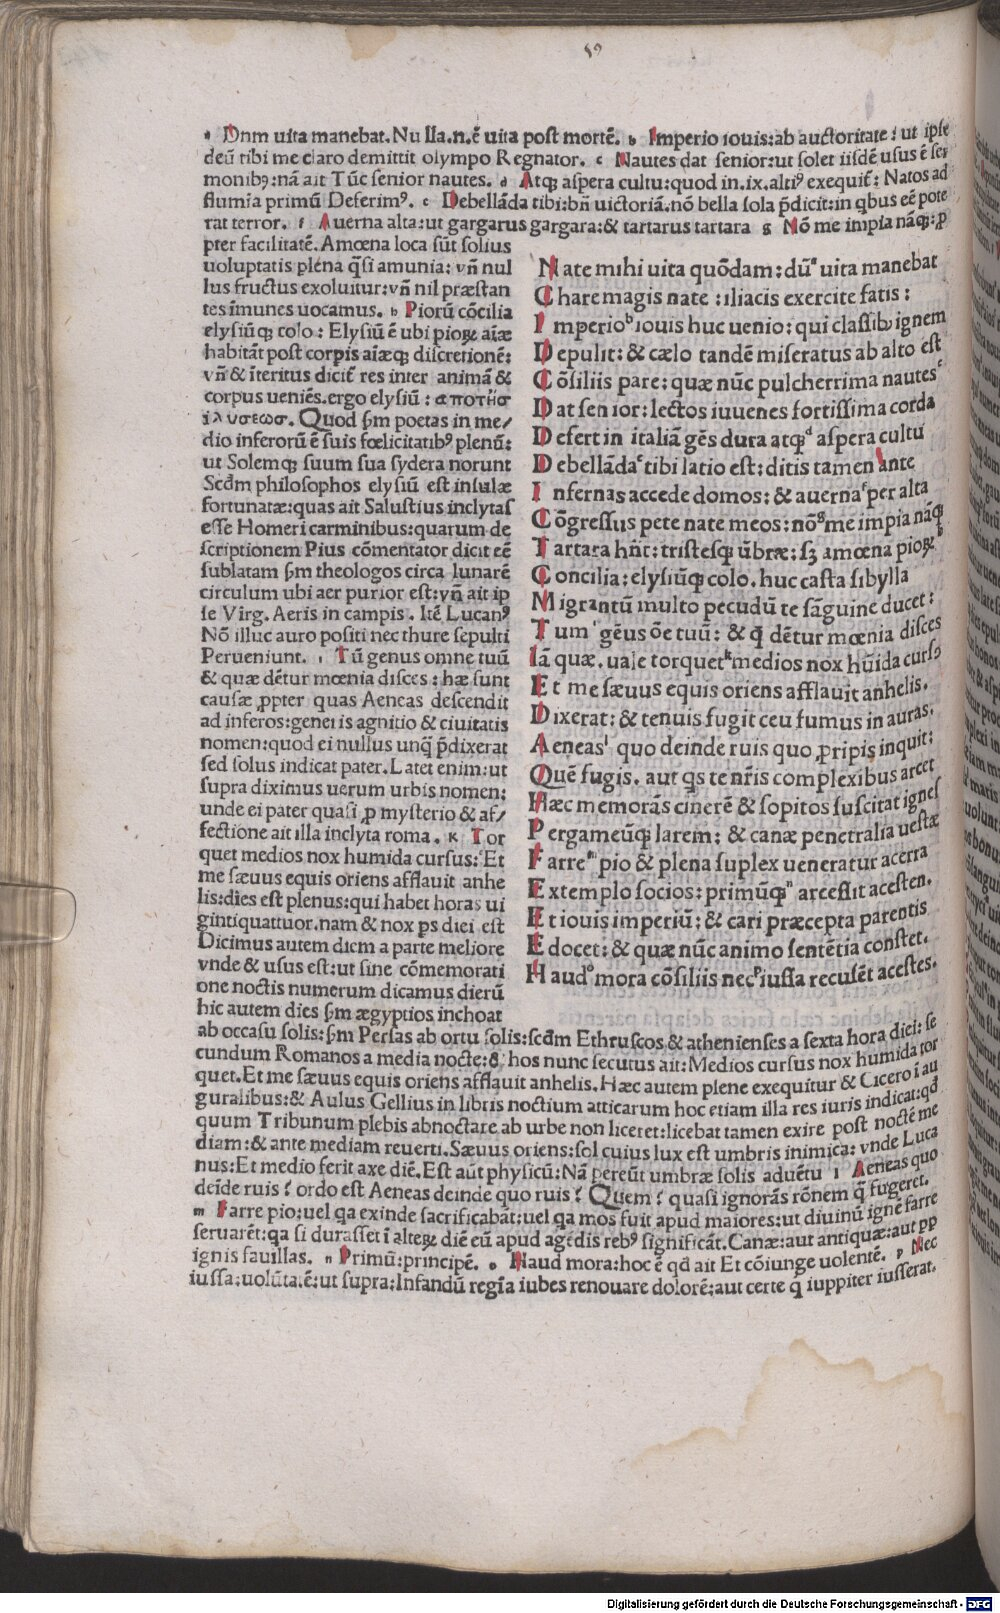 a Dnm uita manebat. Nulla.n.ē uita post mortē. b Imperio iouis: ab auctoritate: ut ipse
deū tibi me claro demittit olympo Regnator. c Nautes dat senior: ut solet iisdē usus ē ser
monibꝰ: nā ait Tūc senior nautes. d Atqꝫ aspera cultu: quod in.ix.altiꝰ exequit̄: Natos ad
flumia primū Deferimꝰ. e Debellāda tibi: bn̄ uictoriā. nō bella sola p̄dicit: in qbus eē pote
rat terror. f Auerna alta: ut gargarus gargara: & tartarus tartara g Nō me impia nāqꝫ: ꝓ
pter facilitatē. Amœna loca sūt solius
uoluptatis plena q̄si amunia: vn̄ nul
lus fructus exoluitur: vn̄ nil præstan
tes īmunes uocamus. h Piorū cōcilia
elysiūqꝫ colo: Elysiū ē ubi pioꝝ aīæ
habitāt post corpis aīæqꝫ discretionē:
vn̄ & īteritus dicit̄ res inter animā &
corpus ueniēs. ergo elysiū: αποτῆσ
ιλυσεωσ. Quod s̄m poetas in me/
dio inferorū ē suis fœlicitatibꝰ plenū:
ut Solemqꝫ suum sua sydera norunt
Scd̄m philosophos elysiū est insulæ
fortunatæ: quas ait Salustius inclytas
esse Homeri carminibus: quarum de
scriptionem Pius cōmentator dicit eē
sublatam s̄m theologos circa lunarē
circulum ubi aer purior est: vn̄ ait ip
se Virg. Aeris in campis. Itē Lucanꝰ
Nō illuc auro positi nec thure sepulti
Perueniunt. i Tū genus omne tuū
& quæ dētur mœnia disces: hæ sunt
causæ ꝓpter quas Aeneas descendit
ad inferos: generis agnitio & ciuitatis
nomen: quod ei nullus unq̄ p̄dixerat
sed solus indicat pater. Latet enim: ut
supra diximus uerum urbis nomen:
unde ei pater quasi ꝓ mysterio & af/
fectione ait illa inclyta roma. K Tor
quet medios nox humida cursus: Et
me sæuus equis oriens afflauit anhe
lis: dies est plenus: qui habet horas ui
gintiquattuor. nam & nox ps diei est
Dicimus autem diem a parte meliore
vnde & usus est: ut sine cōmemorati
one noctis numerum dicamus dierū
hic autem dies s̄m ægyptios inchoat
Nate mihi uita quōdam: dūᵃ uita manebat
Chare magis nate: iliacis exercite fatis:
Imperioᵇ iouis huc uenio: qui classibꝫ ignem
Depulit: & cælo tandē miseratus ab alto est
Cōsiliis pare: quæ nūc pulcherrima nautesᶜ
Dat senior: lectos iuuenes fortissima corda
Defert in italiā gēs dura atqꝫᵈ aspera cultu
Debellādaᵉ tibi latio est: ditis tamen ante
Infernas accede domos: & auernaᶠ per alta
Cōgressus pete nate meos: nōᵍ me impia nāqꝫ
Tartara hn̄t: tristesqꝫ ūbræ: sꝫ amœna pioꝝʰ
Concilia: elysiūqꝫ colo. huc casta sibylla
Migrantū multo pecudū te sāguine ducet:
Tumⁱ gēus ōe tuū: & q̄ dētur mœnia disces
Iāqꝫ. uale torquetᵏ medios nox hūida cursꝰ
Et me sæuus equis oriens afflauit anhelis.
Dixerat: & tenuis fugit ceu fumus in auras.
Aeneasˡ quo deinde ruis quo ꝓripis inquit:
Quē fugis. aut qs te nr̄is complexibus arcet
Hæc memorās cinerē & sopitos suscitat ignes
Pergameūqꝫ larem: & canæ penetralia uestæ
Farreᵐ pio & plena suplex ueneratur acerra
Extemplo socios: primūqꝫⁿ arcessit acesten.
Et iouis imperiū: & cari præcepta parentis
Edocet: & quæ nūc animo sentētia constet.
Haudᵒ mora cōsiliis necᵖ iussa recusēt acestes.
ab occasu solis: s̄m Persas ab ortu solis: scd̄m Ethruscos & athenienses a sexta hora diei: se
cundum Romanos a media nocte: & hos nunc secutus ait: Medios cursus nox humida tor
quet. Et me sæuus equis oriens afflauit anhelis. Hæc autem plene exequitur & Cicero ī au
guralibus: & Aulus Gellius in libris noctium atticarum hoc etiam illa res iuris indicat: qd̄
quum Tribunum plebis abnoctare ab urbe non liceret: licebat tamen exire post noctē me
diam: & ante mediam reuerti. Sæuus oriens: sol cuius lux est umbris inimica: vnde Luca
nus: Et medio ferit axe diē. Est aūt physicū: Nā pereūt umbræ solis aduētu l Aeneas quo
deīde ruis? ordo est Aeneas deinde quo ruis? Quem? quasi ignorās rōnem q̄ fugeret.
m Farre pio: uel qa exinde sacrificabāt: uel qa mos fuit apud maiores: ut diuinū ignē farre
seruarēt: qa si durasset ī alteꝝ diē eū apud agēdis rebꝰ significāt. Canæ: aut antiquæ: aut ꝓp
ignis fauillas. n Primū: principē. o Haud mora: hoc ē qd̄ ait Et cōiunge uolentē. p Nec
iussa: uolūta.ē: ut supra: Infandū regīa iubes renouare dolorē: aut certe q̄ iuppiter iusserat.
Digitalisierung gefördert durch die Deutsche Forschungsgemeinschaft - DFG